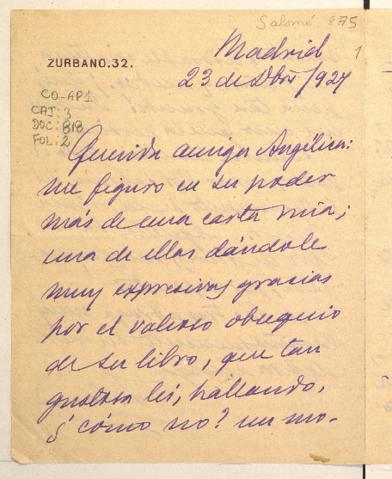 Salomé 275
1
ZURBANO.32.
Madrid
23 de Dbre/927
CO-AP1
CAJ: 3
DOC: 818
FOL: 2
Querida amiga Angélica:
me figuro en su poder
más de una carta mía;
una de ellas dándole
muy expresivas gracias
por el valioso obsequio
de su libro, que tan
gustosa leí, hallando,
¿cómo no? un mo-